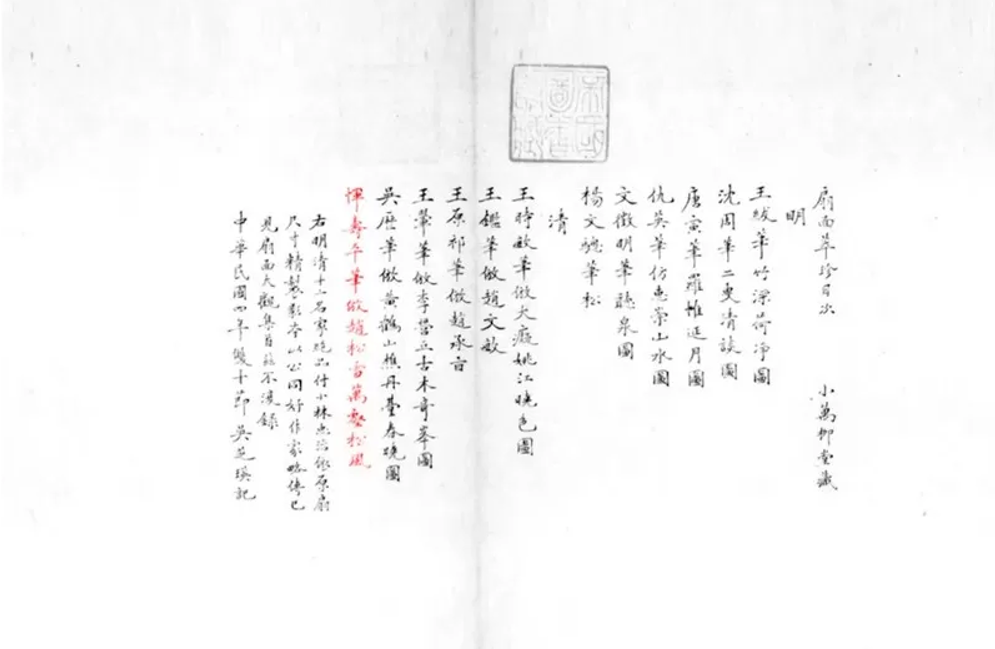 扇面萃珍目次 小萬柳堂藏
明
王紱筆竹深荷净圖
沈周筆二叟清談圖
唐寅筆羅帷延月圖
仇英筆仿惠崇山水圖
文徵明筆聽泉圖
楊文驄筆松
清
王時敏筆倣大癡姚江曉色圖
王鑑筆倣趙文敏
王原祁筆倣趙承旨
王翬筆倣李營丘古木奇峯圖
吳歷筆倣黃鶴山樵丹臺春曉圖
惲壽平筆倣趙松雪萬壑松風
右明清十二名家晥品付小林忠治依原扇
尺寸精製影本以公同好作家略傳已
見扇面大觀集首茲不復錄
中華民國四年雙十節 吳芝瑛記